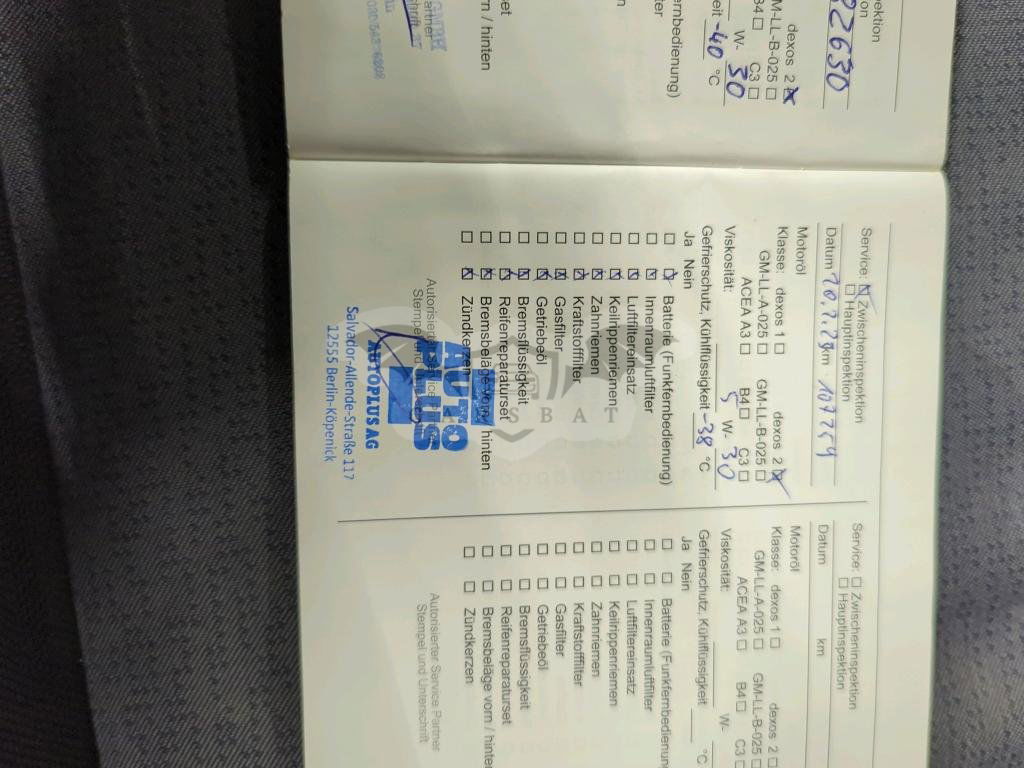 82630
dexos 2
GM-LL-B-025
C3
W- 30
-40 °C
ernbedienung)
vorn / hinten
Service: Zwischeninspektion
Hauptinspektion
Datum km 107259
Motoröl
Klasse: dexos 1 dexos 2
GM-LL-A-025 GM-LL-B-025
ACEA A3 B4 C3
Viskosität: 5 W- 30
Gefrierschutz, Kühlflüssigkeit -38 °C
Ja Nein
Batterie (Funkfernbedienung)
Innenraumluftfilter
Luftfiltereinsatz
Keilrippenriemen
Zahnriemen
Kraftstofffilter
Gasfilter
Getriebeöl
Bremsflüssigkeit
Reifenreparaturset
Bremsbeläge vorn / hinten
Zündkerzen
AUTO
PLUS
AUTOPLUS AG
Salvador-Allende-Straße 117
12555 Berlin-Köpenick
Service: Zwischeninspektion
Hauptinspektion
Datum km
Motoröl
Klasse: dexos 1 dexos 2
GM-LL-A-025 GM-LL-B-025
ACEA A3 B4 C3
Viskosität: W-
Gefrierschutz, Kühlflüssigkeit °C
Ja Nein
Batterie (Funkfernbedienung
Innenraumluftfilter
Luftfiltereinsatz
Keilrippenriemen
Zahnriemen
Kraftstofffilter
Gasfilter
Getriebeöl
Bremsflüssigkeit
Reifenreparaturset
Bremsbeläge vorn / hinten
Zündkerzen
Autorisierter Service Partner
Stempel und Unterschrift